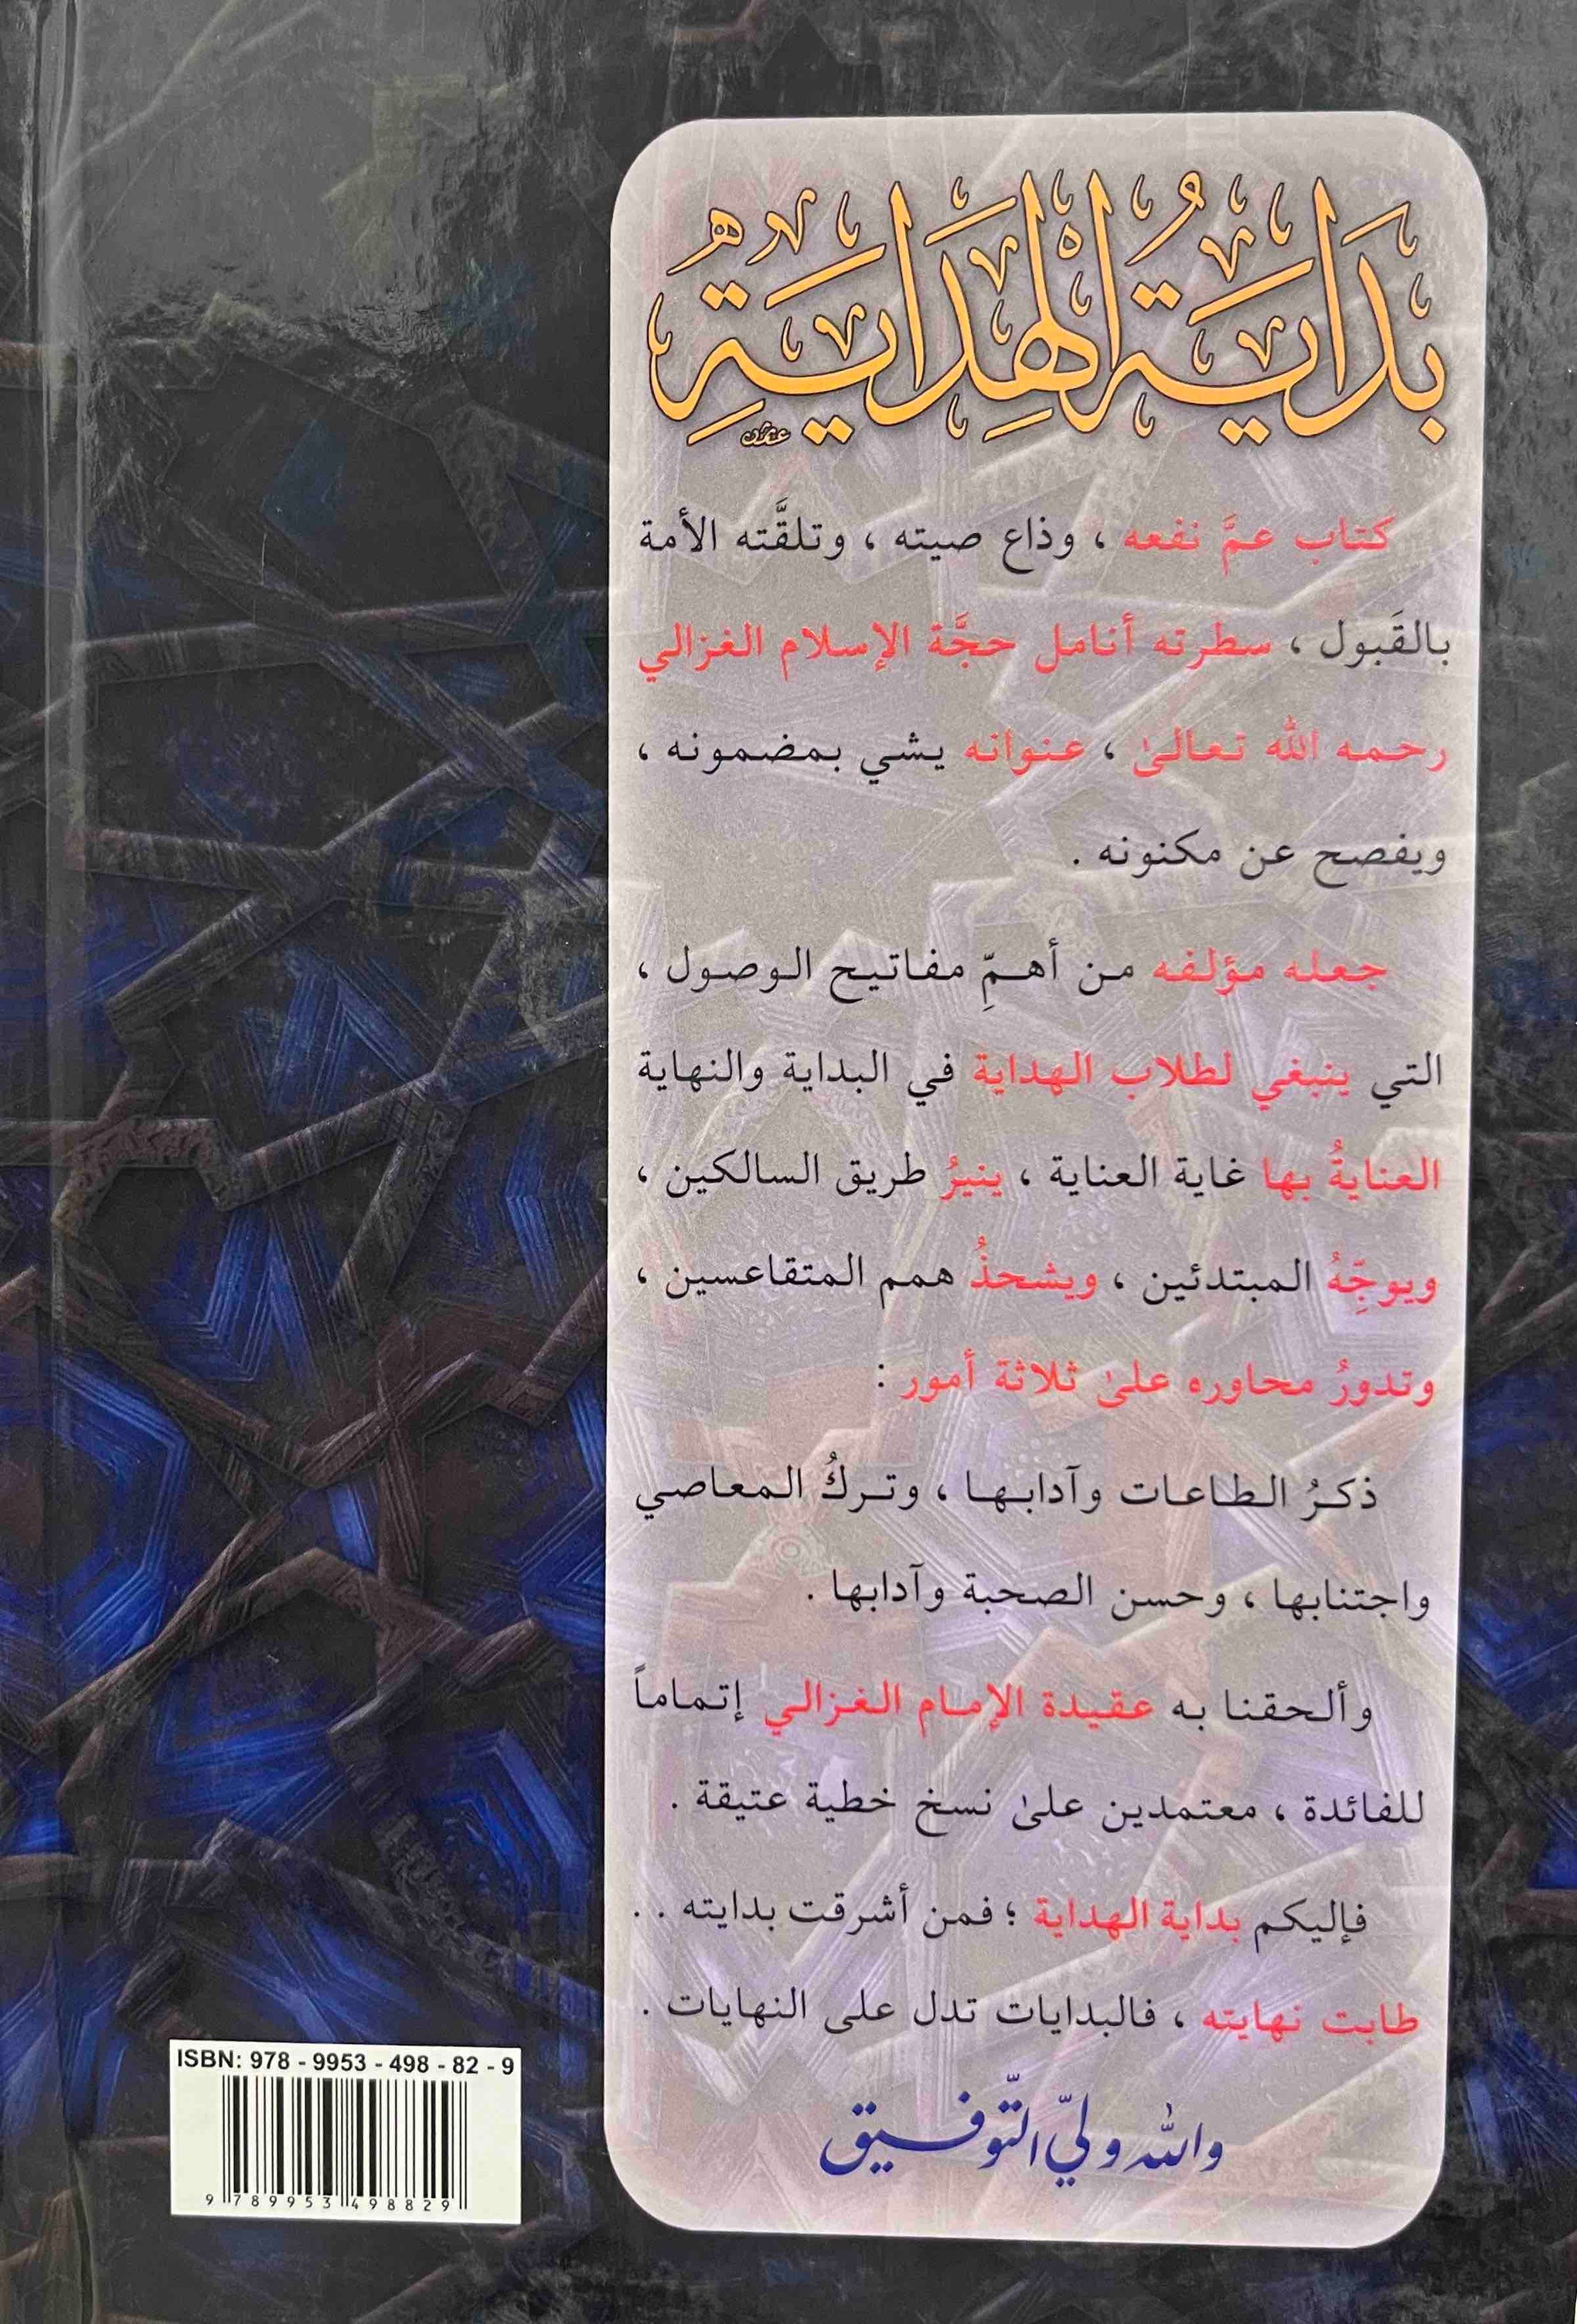 بِدَايَةُ الْهِدَايَةِ
كتاب عمَّ نفعه ، وذاع صيته ، وتلقَّته الأمة
بالقَبول ، سطرته أنامل حجَّة الإسلام الغزالي
رحمه الله تعالىٰ ، عنوانه يشي بمضمونه ،
ويفصح عن مكنونه .
جعله مؤلفه من أهمِّ مفاتيح الوصول ،
التي ينبغي لطلاب الهداية في البداية والنهاية
العنايةُ بها غاية العناية ، ينيرُ طريق السالكين ،
ويوجِّهُ المبتدئين ، ويشحذُ همم المتقاعسين ،
وتدورُ محاوره علىٰ ثلاثة أمور :
ذكرُ الطاعات وآدابها ، وتركُ المعاصي
واجتنابها ، وحسن الصحبة وآدابها .
وألحقنا به عقيدة الإمام الغزالي إتماماً
للفائدة ، معتمدين علىٰ نسخ خطية عتيقة .
فإليكم بداية الهداية ؛ فمن أشرقت بدايته . .
طابت نهايته ، فالبدايات تدل على النهايات .
والله وليّ التّوفيق
ISBN: 978 - 9953 - 498 - 82 - 9
9 789953 498829